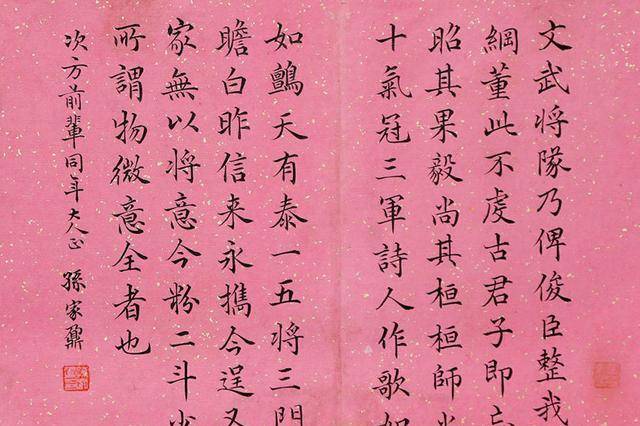 文武将隊乃俾俊臣整我
綱董此不虔古君子即
昭其果毅尚其桓桓師
十氣冠三軍詩人作歌如
如鸇天有泰一五将三門
瞻白昨信来永攜今逞又
家無以将意今粉二斗
所謂物微意全者也
次方前輩同年大人正 孫家鼐